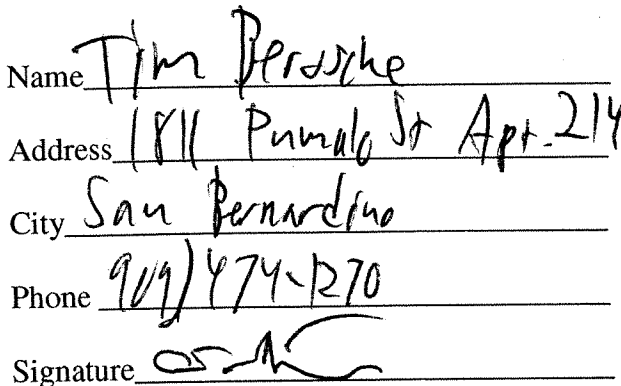 Name Tim
Address 1811 Pumalo St Apt. 214
City San Bernardino
Phone 909) 474-1270
Signature